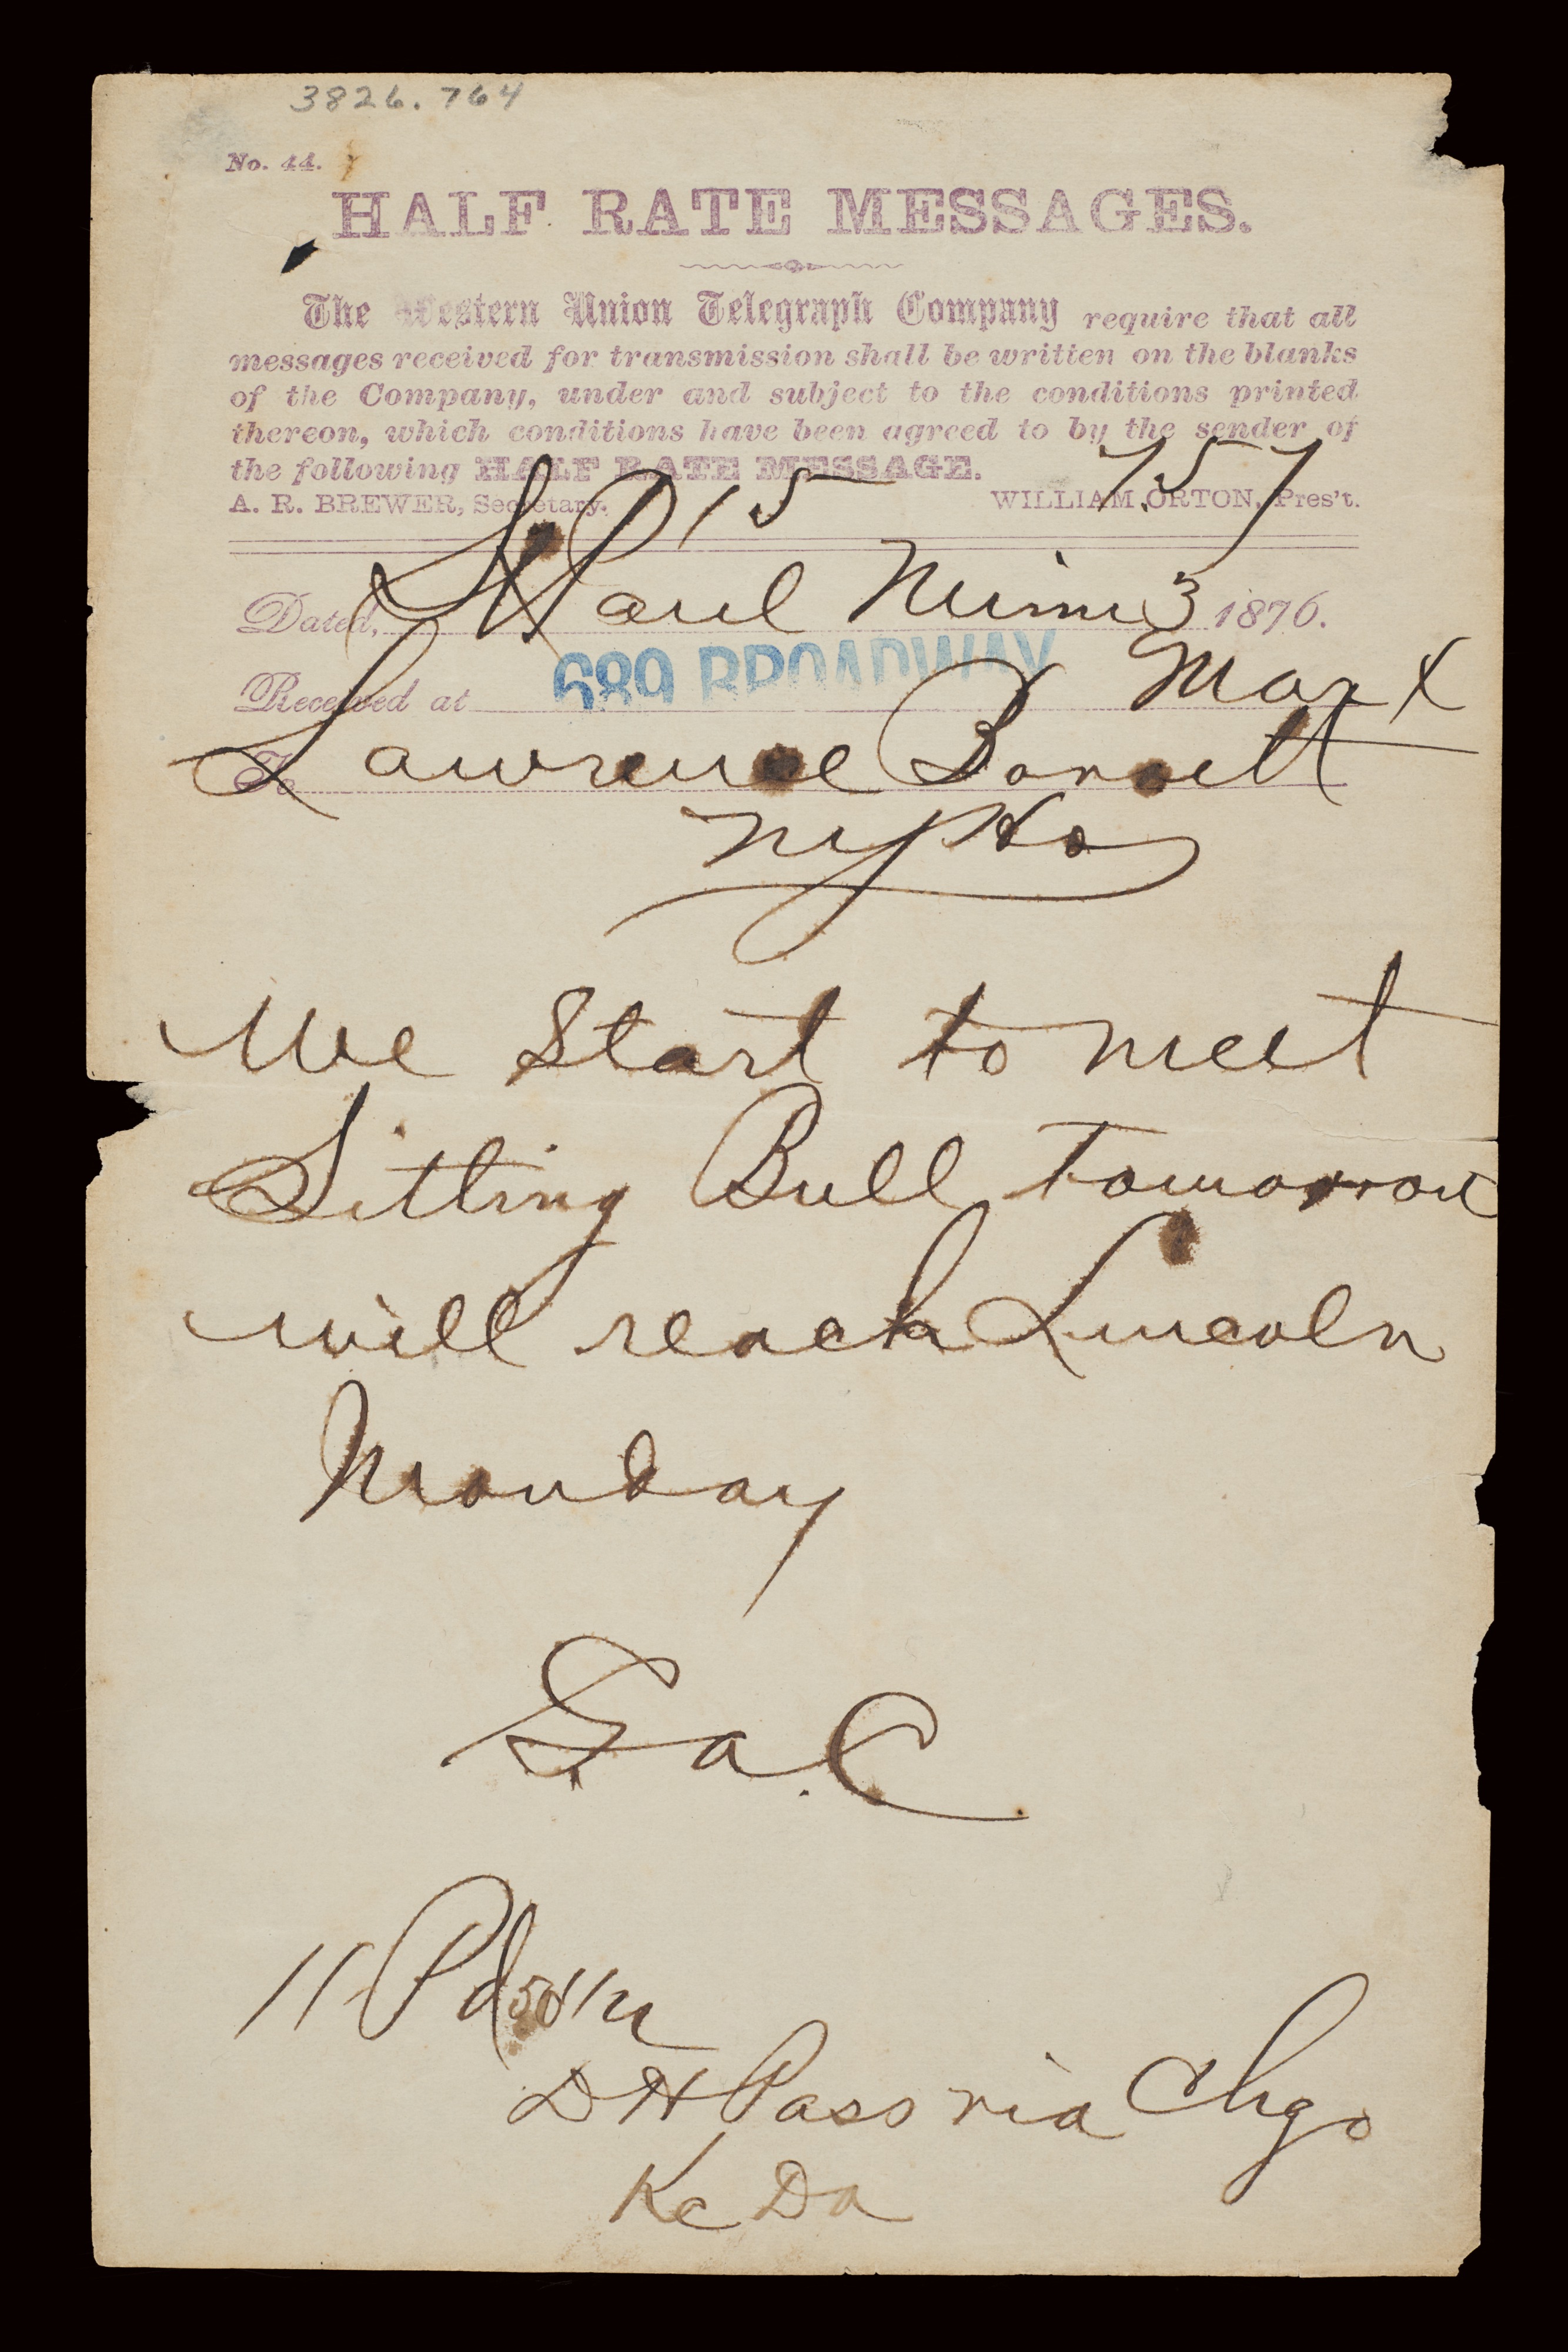 3826.764
No. 44.
HALF RATE MESSAGES.
The Western Union Telegraph Company require that all
messages received for transmission shall be written on the blanks
of the Company, under and subject to the conditions printed
thereon, which conditions have been agreed to by the sender of
the following HALF RATE MESSAGE.
A. R. BREWER, Secretary. WILLIAM ORTON, Pres't.
15 757
Dated, St Paul Minn 3 1876.
Received at 689 BROADWAY Mar
To Lawrence Barrett
We Start to meet
Sitting Bull Tomorrow
will reach Lincoln
Monday
G a. C.
11 Pd
DH Pass via Chgo